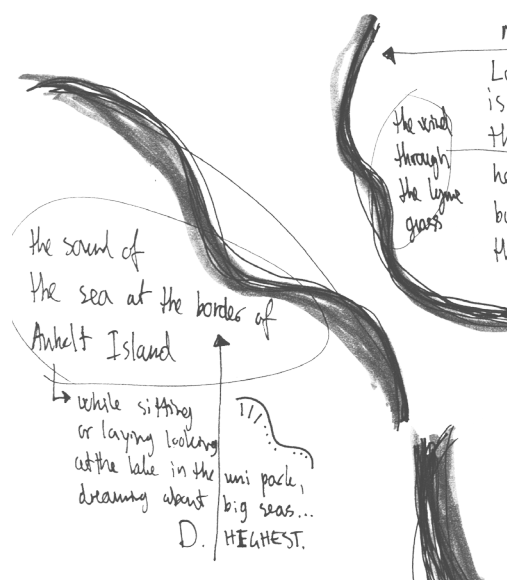 the sound of
the sea at the border of
Anholt Island
while sitting
or laying looking
at the lake in the uni park,
dreaming about big seas...
D. HIGHEST.
the wind
through
the lyme
grass
Lo
is
th
he
bu
th